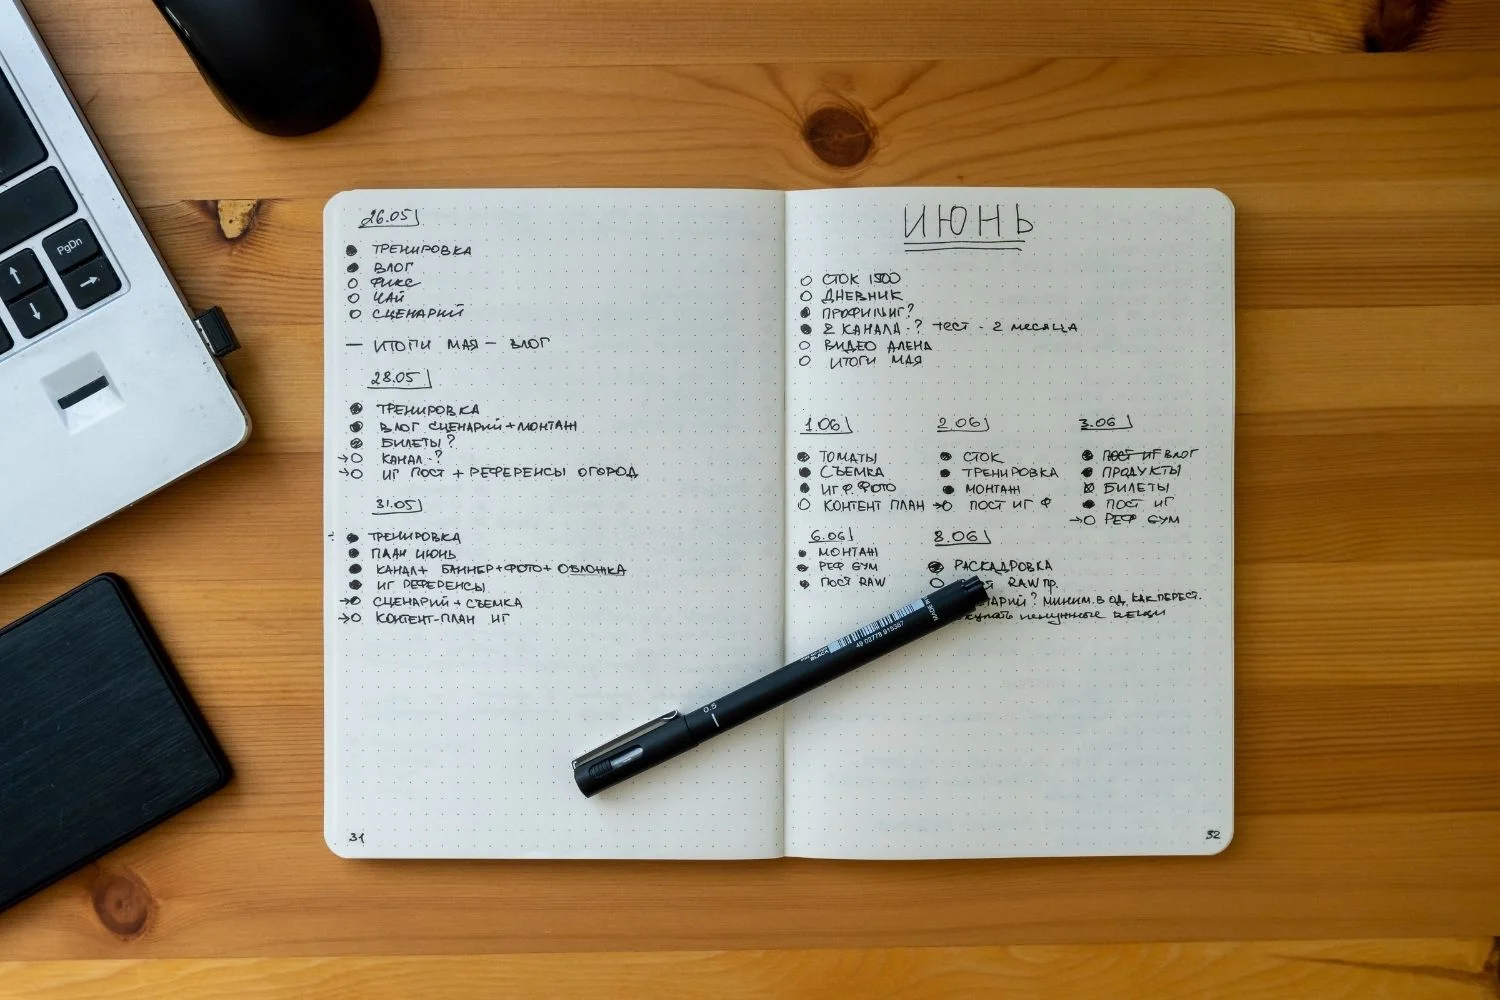 PgDn
26.05
ТРЕНИРОВКА
ВЛОГ
ФИКС
ЧАЙ
СЦЕНАРИЙ
— ИТОГИ МАЯ — ВЛОГ
28.05
ТРЕНИРОВКА
ВЛОГ СЦЕНАРИЙ + МОНТАЖ
БИЛЕТЫ?
КАНАЛ - ?
ИГ ПОСТ + РЕФЕРЕНСЫ ОГОРОД
31.05
ТРЕНИРОВКА
ПЛАН ИЮНЬ
КАНАЛ + БАННЕР + ФОТО + ОБЛОЖКА
ИГ РЕФЕРЕНСЫ
СЦЕНАРИЙ + СЪЕМКА
КОНТЕНТ-ПЛАН ИГ
31
ИЮНЬ
СТОК 1500
ДНЕВНИК
ПРОФИЛИГ?
2 КАНАЛА - ? ТЕСТ - 2 месяца
ВИДЕО АЛЕНА
ИТОГИ МАЯ
1.06
ТОМАТЫ
СЪЕМКА
ИГ Ф. ФОТО
КОНТЕНТ ПЛАН
2.06
СТОК
ТРЕНИРОВКА
МОНТАЖ
ПОСТ ИГ Ф
3.06
ПОСТ ИГ ВЛОГ
ПРОДУКТЫ
БИЛЕТЫ
ПОСТ ИГ
РЕФ GYM
6.06
МОНТАЖ
РЕФ GYM
ПОСТ RAW
8.06
РАСКАДРОВКА
RAW ПР.
? МИНИМ. В ОД. КАК ПЕРЕСТ.
ненужные вещи
32
0.5
BLACK
MADE IN